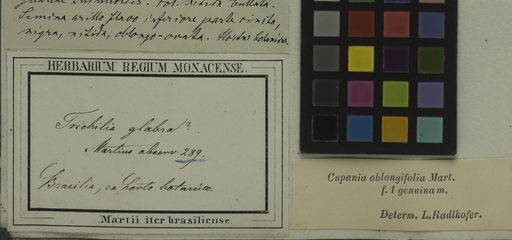 Fol. nitida bullata.
Semina arillo flavo inferiore parte cincta,
nigra, nitida, oblongo-ovata. Hortus botanicus.
HERBARIUM REGIUM MONACENSE.
Trichilia glabra?
Martius observ. 289.
Brasilia, ex horto botanico.
Martii iter brasiliense.
Cupania oblongifolia Mart.
f. 1 genuina m.
Determ. L. Radlkofer.